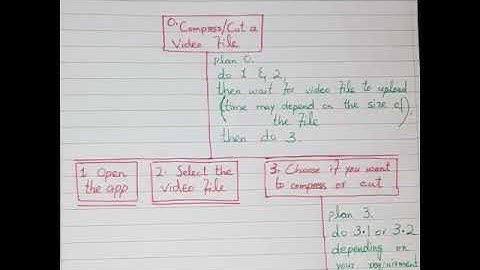 0. Compress/Cut a
Video File
plan 0.
do 1 & 2,
then wait for video file to upload
(time may depend on the size of
the file),
then do 3.
1. Open
the app
2. Select the
video file
3. Choose if you want
to compress or cut
plan 3.
do 3.1 or 3.2
depending on
your requirment